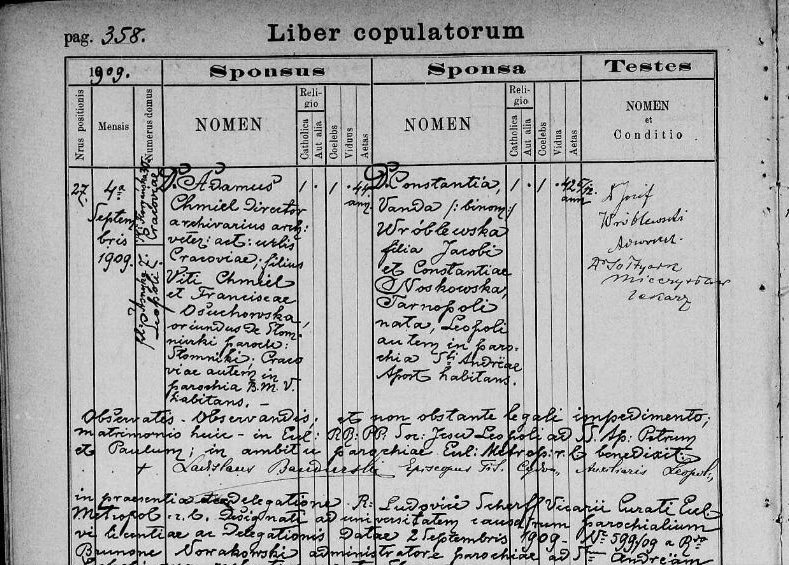 pag. 358.
Liber copulatorum
1909.
Sponsus
Sponsa
Testes
Nrus positionis
Mensis
Numerus domus
NOMEN
Reli-
gio
Catholica
Aut alia
Coelebs
Viduus
Aetas
NOMEN
Reli-
gio
Catholica
Aut alia
Coelebs
Vidua
Aetas
NOMEN
et
Conditio
27
4ª
Septem
bris
1909.
Cracoviae
Leopoli
Dr. Adamus
Chmiel Director
archivarius arch:
veter: act: urbis
Cracoviae; filius
Viti Chmiel
et Franciscae
Osuchowska,
oriundus de Słom-
niki paroch:
Słomniki: Craco
viae autem in
parochia B. M. V.
habitans. –
1 . 1 . 44
ann.
Dr. Constantia,
Vanda /: binom:/
Wróblewska
filia Jacobi
et Constantiae
Noskowska,
Tarnopoli
nata, Leopoli
autem in paro-
chia Sti Andreae
Apost habitans.
1 . 1 . 42
ann
Dr Józef
Wróblewski
Adwokat.
lekarz
Observatis - Observandis; et non obstante legali impedimento;
matrimonio huic - in Eccl: RR: PP. Soc: Jesu Leopoli ad SS. Ap: Petrum
et Paulum; in ambitu parochiae Eccl: Metrop: r. l. benedixit:
+ Ladislaus Bandurski Episcopus Tit. Cydon., Auxiliaris Leopol.,
in praesentia delegatione R: Ludovici Scherff Vicarii Curati Eccl
Metropol. r. l. Designati ad universitatem causarum parochialium
vi licentiae ac Delegationis Datae 2 Septembris 1909 - No 599/09 a
Brunone Nowakowski administratore parochiae ad Stum Andream